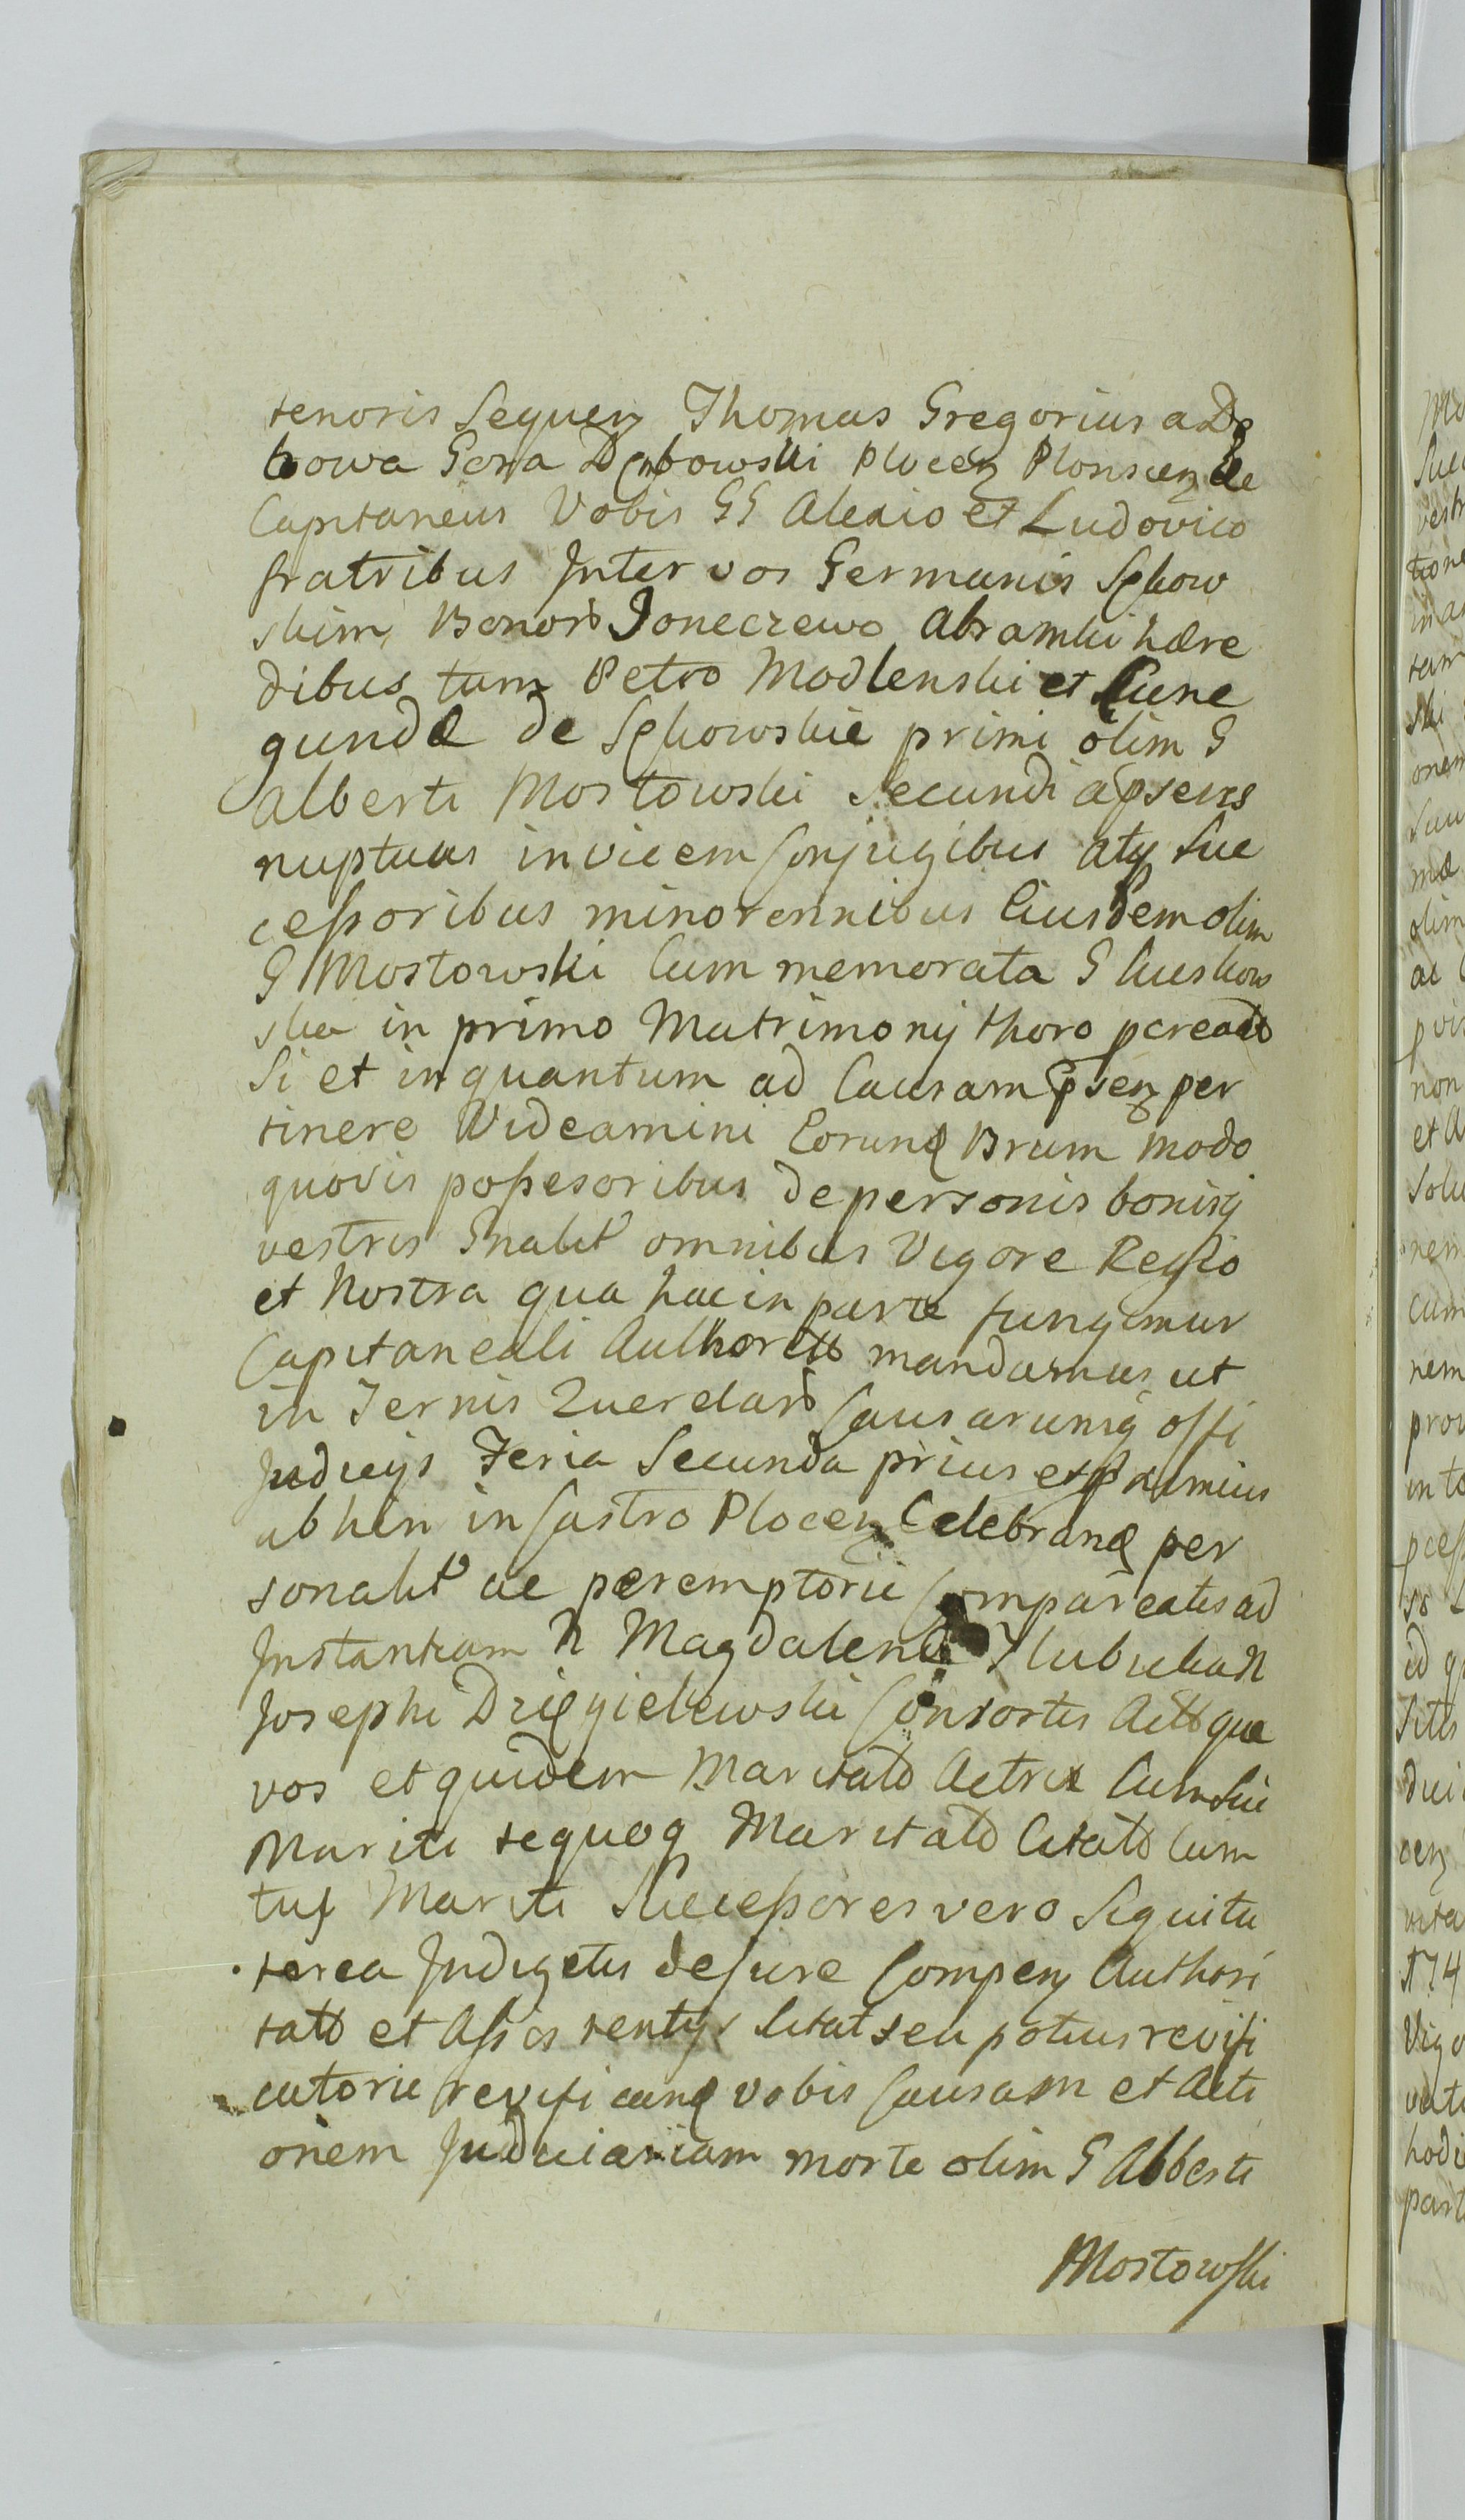 tenoris Sequen Thomas Gregorius a Do
browa Gora Dębowski Plocen Plonscen &c
Capitaneus Vobis GG Alexio et Ludovico
fratribus Inter vos Germanis Sękow
skim Bonor Joneczewo Abramki hære
dibus tum Petro Modlenski et Cune
gundæ de Sękowskie primi olim G
Alberti Mostowski Secundi apsens
nuptuas invicem Conjugibus atq Suc
cessoribus minorennibus Eiusdem olim
G Mostowski Cum memorata G
ska in primo Matrimonij thoro pcreatis
Si et in quantum ad Causam psen per
tinere Videamini Eorund Brum modo
quovis possesoribus de personis bonisq
vestris Gnalit omnibus Vigore Regio
et Nostra qua hac in parte fungimur
Capitaneali Authorett mandamus ut
in Termis Querelar Causarumq offi
Judicijs Feria Secunda prius et primius
abhin in Castro Plocen Celebrand per
sonalit ac peremptorie Compareatis ad
Instantiam N Magdalenæ N
Josephi Dzięgielewski Consortis que
vos et quidem Maritato Actrix Cum Sui
Mariti tequoq Maritato Citato Cum
tuj Mariti Successores vero Siquitu
terea Indigetis de Jure Compen Authori
tatt et Assis tentys Citat seu potius revifi
catorie revificand vobis Causam et Acti
onem Judiciariam morte olim G Alberti
Mostowski